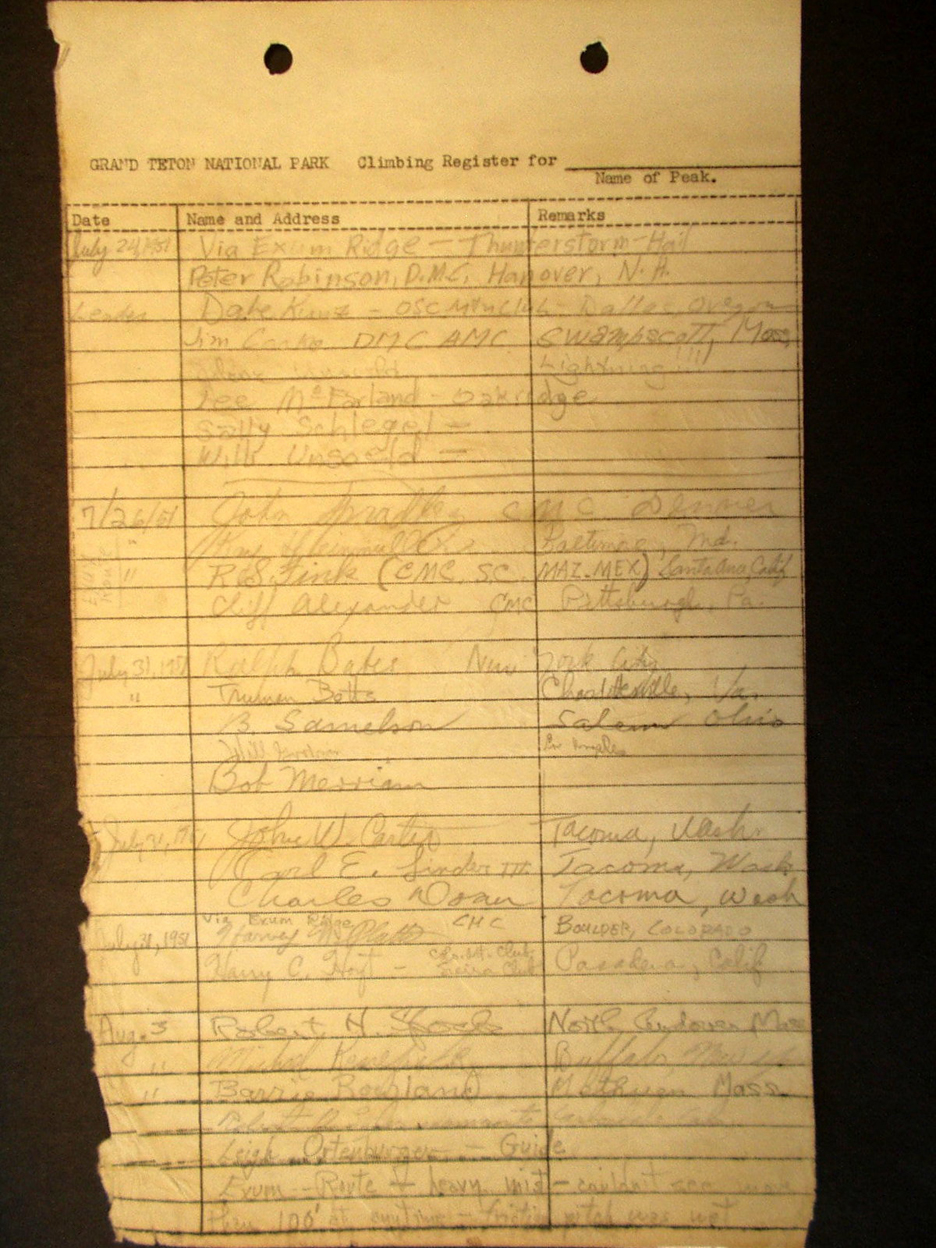 GRAND TETON NATIONAL PARK Climbing Register for
Name of Peak.
Date Name and Address Remarks
July 24, 1951 Via Exum Ridge — Thunterstorm-Hail
Peter Robinson, D.M.C. Hanover, N.H.
Leader — Dallas, Oregon
Jim DMC AMC Swampscott, Mass.
Lightning!!!
Lee McFarland - Oakridge
Sally Schlegel —
Willi Unsoeld —
7/26/51 John CMC Denver
" Baltimore, Md.
" R.S. Fink (CMC, SC, MAZ. MEX) Santa Ana, Calif
Cliff Alexander CMC Pittsburgh, Pa.
July 31, 1951 Ralph Bates New York City
" Truman Botts Charlottesville, Va.
B Samelson Salem Ohio
Los Angeles
Bob Merriam
July 31, 1951 John W. Carter Tacoma, Wash.
Carl E. Linder III Tacoma, Wash
Charles Doan Tacoma, Wash
Via Exum Ridge
July 31, 1951 Harvey CMC BOULDER, COLORADO
Harry C. Hoyt - Colo. Mt. Club, Sierra Club Pasadena, Calif
Aug. 3 Robert H. North Andover Mass
" Michel Buffalo
" Barrie Methuen Mass.
Leigh Ortenburger — Guide
Exum Route + heavy mist - couldn't see more
than 100' at anytime - friction pitch was wet